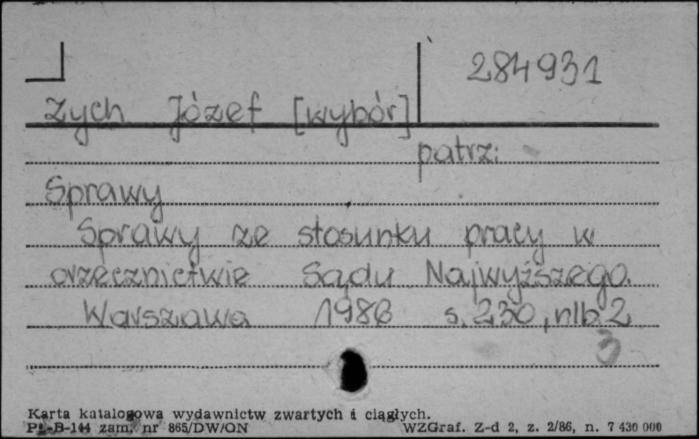 284931
Zych Józef [wybór]
patrz:
Sprawy
Sprawy ze stosunku pracy w
orzecznictwie Sądu Najwyższego.
Warszawa 1986 s. 230, nlb 2
3
Karta katalogowa wydawnictw zwartych i ciągłych.
Pu-B-144 zam. nr 865/DW/ON WZGraf. Z-d 2, z. 2/86, n. 7 430 000